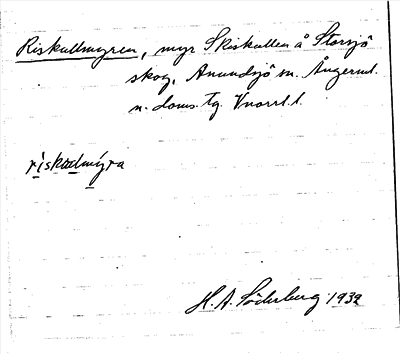 Riskullmyren, myr S Riskullen å Storsjö
skog, Anundsjö sn. Ångerml.
n. doms. tg. Vnorrl. l.
riskudmýra
H. A. Söderberg 1932